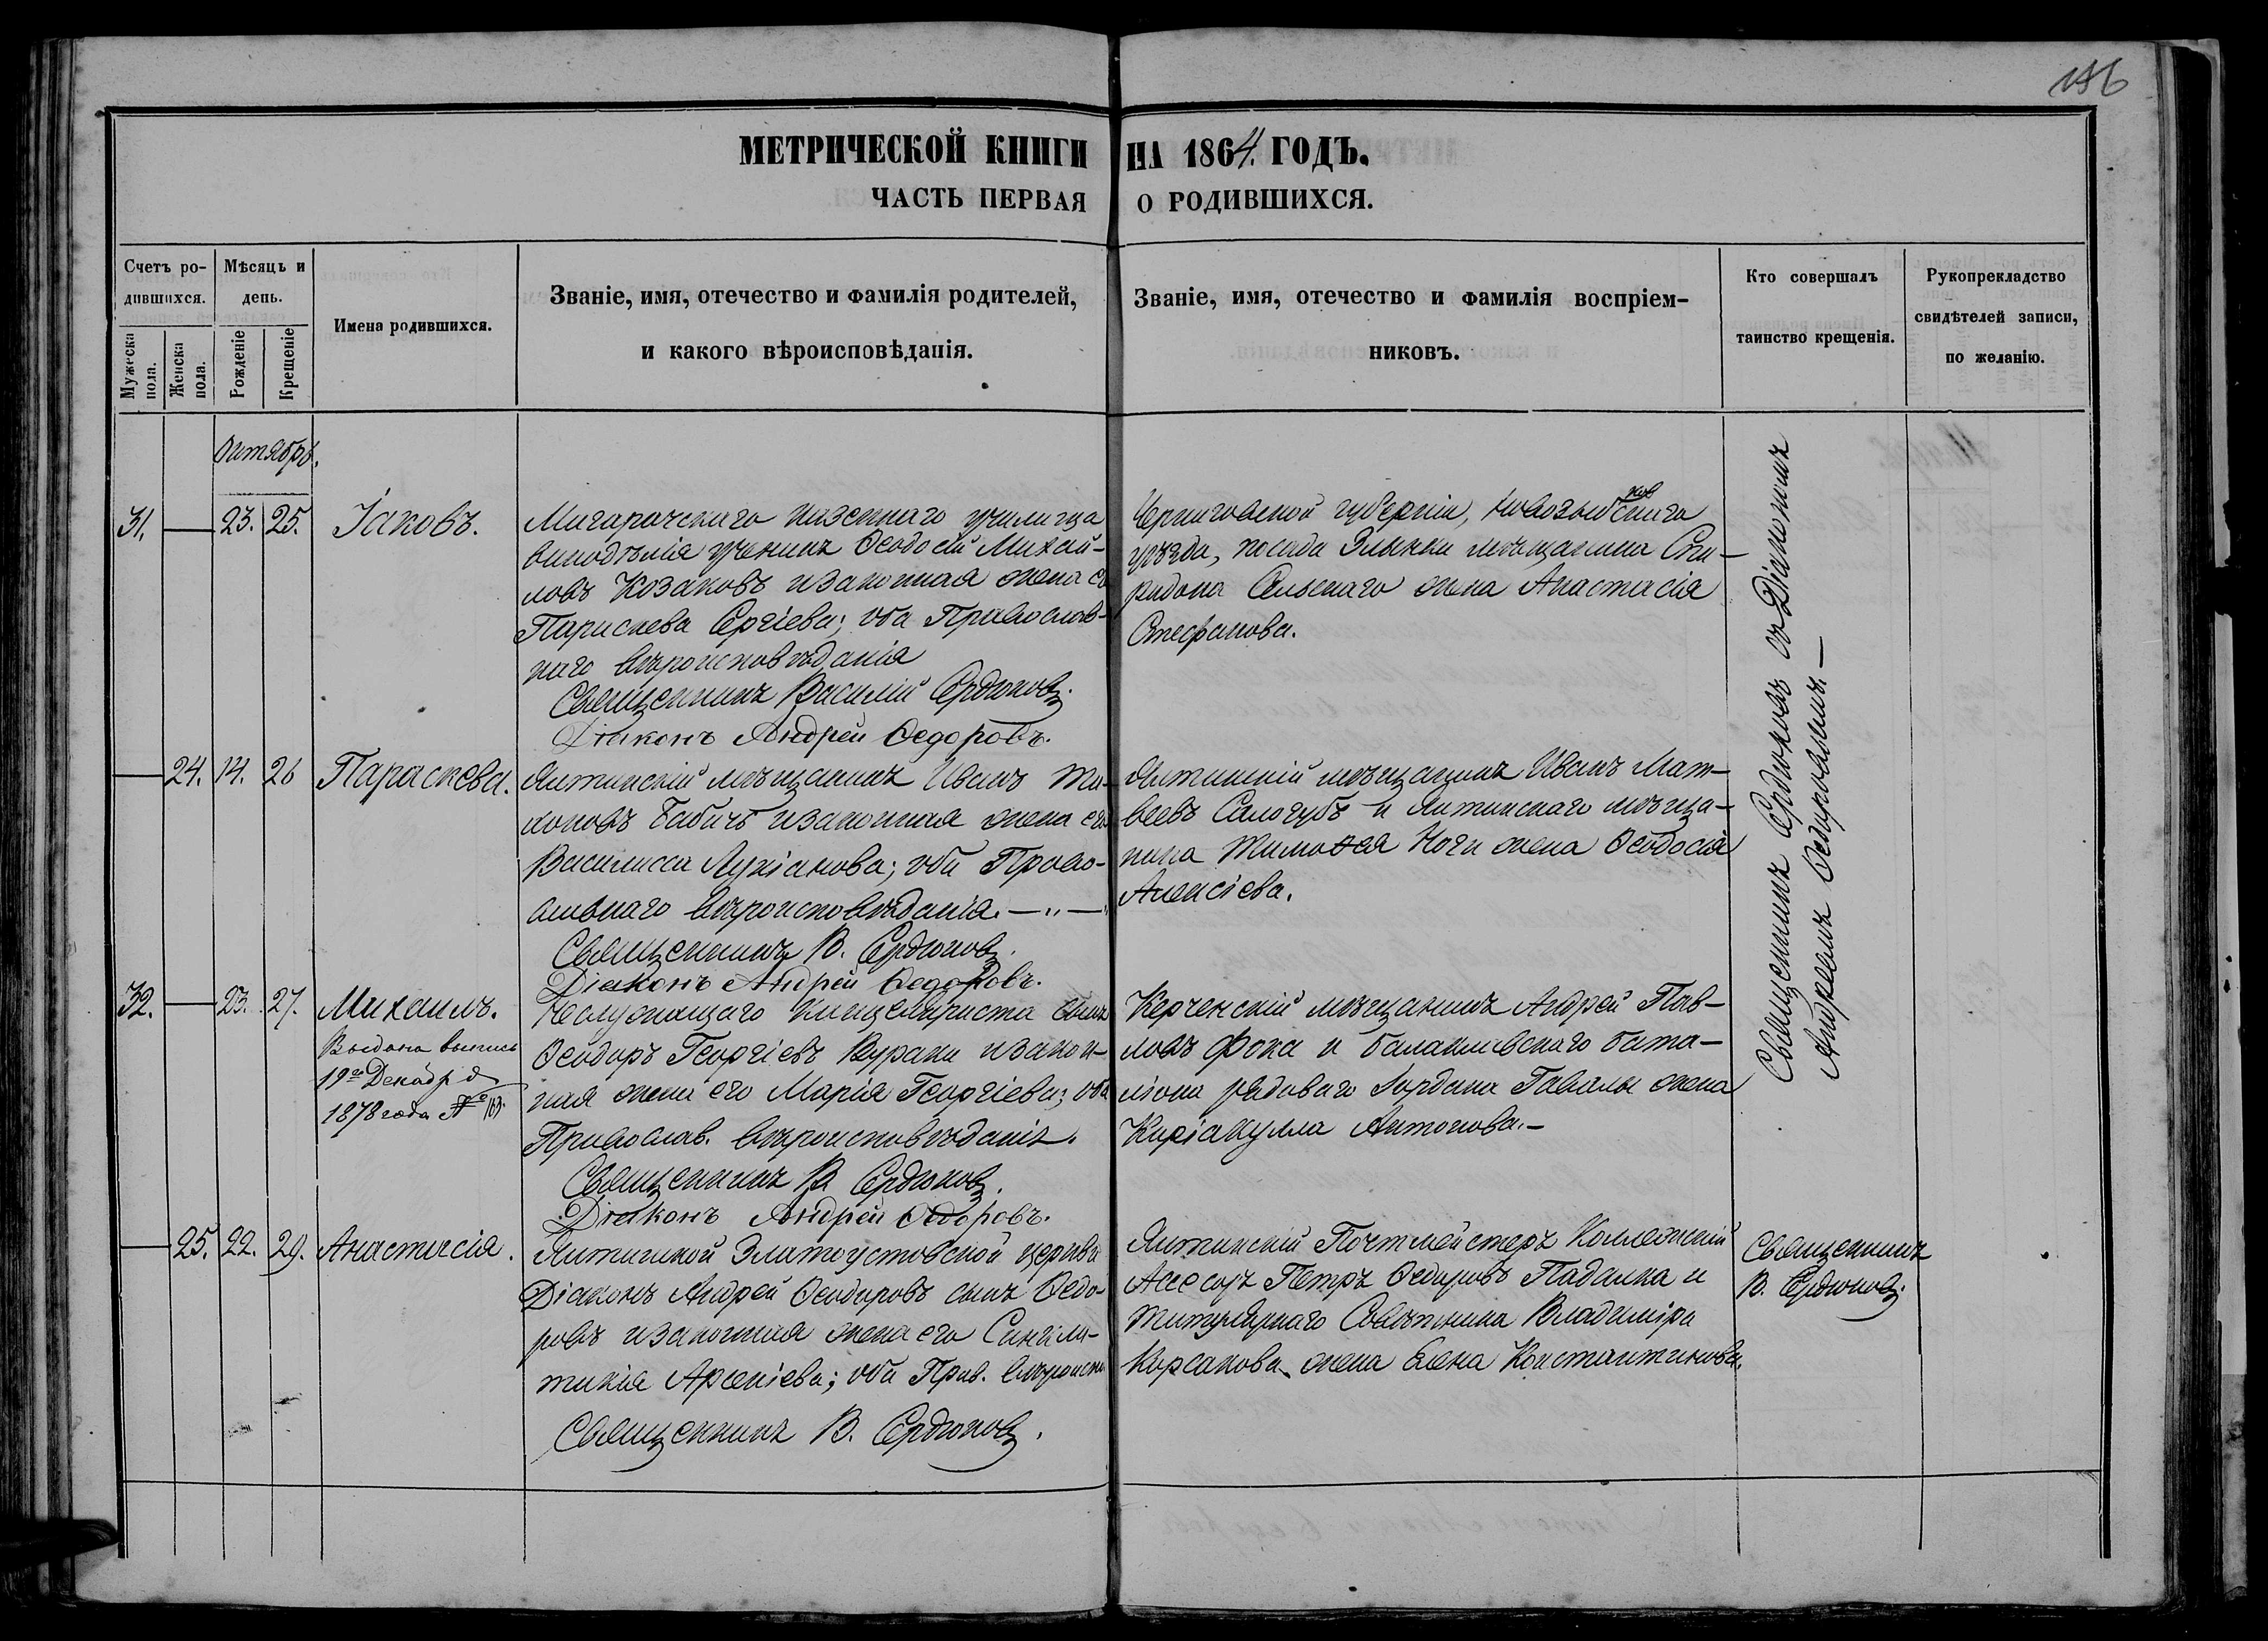 МЕТРИЧЕСКОЙ КНИГИ НА 1864. ГОДЪ.
ЧАСТЬ ПЕРВАЯ О РОДИВШИХСЯ.
Счетъ ро-
дившихся.
Мужеска пола.
Женска пола.
Мѣсяцъ и
день.
Рожденіе
Крещеніе
Имена родившихся.
Званіе, имя, отечество и фамилія родителей,
и какого вѣроисповѣданія.
Званіе, имя, отечество и фамилія воспріем-
никовъ.
Кто совершалъ
таинство крещенія.
Рукоприкладство
свидѣтелей записи,
по желанію.
Октябрь.
31. — 23. 25. Іаковъ.
Магарачскаго казеннаго училища
винодѣлія ученикъ Ѳеодосій Михай-
ловъ Козаковъ и законная жена его
Параскева Сергіева; оба Православ-
наго вѣроисповѣданія
Священникъ Василій Сердюковъ.
Діаконъ Андрей Ѳедоровъ.
Черниговской губерніи, Новозыбковскаго
уѣзда, посада Злынки мѣщанина Спи-
ридона Сальскаго жена Анастасія
Стефанова.
Священникъ Сердюковъ съ Діакономъ
Андреемъ Ѳедоровымъ.—
— 24. 14. 26 Параскева.
Ялтинскій мѣщанинъ Иванъ Ти-
хоновъ Бабичъ и законная жена его
Василисса Лукіанова; оба Право-
славнаго вѣроисповѣданія. —„—„
Священникъ В. Сердюковъ.
Діаконъ Андрей Ѳедоровъ.
Ялтинскій мѣщанинъ Иванъ Мат-
веевъ Сологубъ и Ялтинскаго мѣща-
нина Тимоѳея Ноги жена Ѳеодосія
Алексіева.
32. — 23. 27. Михаилъ.
Выдана выпись
19го Декабря
1878 года №
Неслужащаго Канцеляриста сынъ
Ѳеодоръ Георгіевъ Кураки и закон-
ная жена его Марія Георгіева; оба
Православ. вѣроисповѣданія.
Священникъ В Сердюковъ.
Діаконъ Андрей Ѳедоровъ.
Керченскій мѣщанинъ Андрей Пав-
ловъ Фока и балаклавскаго бата-
ліона рядоваго Іордана Гавалы жена
Киріакулла Антонова.—
— 25. 22. 29. Анастасія.
Ялтинской Златоустовской церкви
Діаконъ Андрей Ѳеодоровъ сынъ Ѳедо-
ровъ и законная жена его Синкли-
тикія Арсеніева; оба Прав. вѣроиспо
Священникъ В. Сердюковъ.
Ялтинскій Почтмейстеръ Коллежскій
Асессоръ Петръ Ѳедоровъ Падалка и
Титулярнаго Совѣтника Владиміра
Корсакова жена Елена Константинова.
Священникъ
В. Сердюковъ.